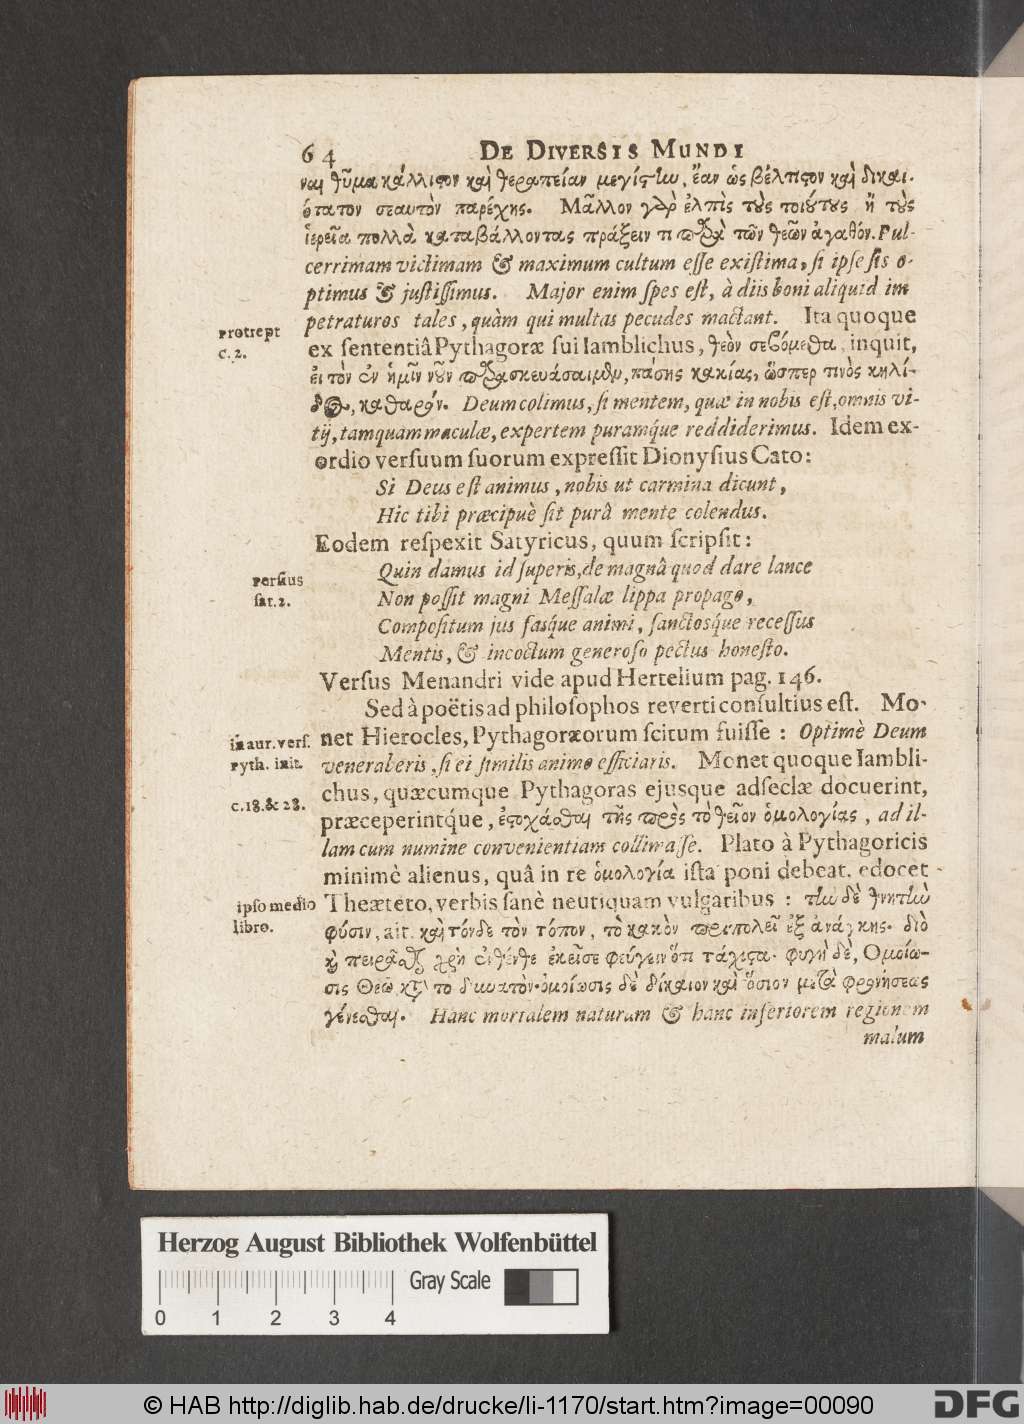 64 DE DIVERSIS MUNDI
ναι θῦμα κάλλιστον καὶ θεραπείαν μεγίστην, ἔαν ὡς βέλτιστον καὶ δικαι-
ότατον σεαυτὸν παρέχῃς. Μᾶλλον γὰρ ἐλπὶς τοὺς τοιούτους ἢ τοὺς
ἱερεῖα πολλὰ καταβάλλοντας πράξειν τι παρὰ τῶν θεῶν ἀγαθόν. Pul-
cerrimam victimam & maximum cultum esse existima, si ipse sis o-
ptimus & justissimus. Major enim spes est, à diis boni aliquid im
petraturos tales, quàm qui multas pecudes mactant. Ita quoque
protrept
c. 2.
ex sententiâ Pythagoræ sui Iamblichus, θεὸν σεβόμεθα, inquit,
ἐι τὸν ἐν ἡμῖν νοῦν παρασκευάσαιμεν, πάσης κακίας, ὥσπερ τινὸς κηλί-
δος, καθαρόν. Deum colimus, si mentem, quæ in nobis est, omnis vi-
tij, tamquam maculæ, expertem puramq́ue reddiderimus. Idem ex-
ordio versuum suorum expressit Dionysius Cato:
Si Deus est animus, nobis ut carmina dicunt,
Hic tibi præcipuè sit purâ mente colendus.
Eodem respexit Satyricus, quum scripsit:
Persius
sat. 2.
Quin damus id superis, de magnâ quod dare lance
Non possit magni Messalæ lippa propago,
Compositum jus fasq́ue animi, sanctosq́ue recessus
Mentis, & incoctum generoso pectus honesto.
Versus Menandri vide apud Hertelium pag. 146.
Sed à poëtis ad philosophos reverti consultius est. Mo-
in aur. vers.
pyth. init.
net Hierocles, Pythagoræorum scitum fuisse: Optimè Deum
veneraberis, si ei similis animo efficiaris. Monet quoque Iambli-
c. 18. & 28.
chus, quæcumque Pythagoras ejusque adseclæ docuerint,
præceperintq́ue, ἐστοχάσθαι τῆς πρὸς τὸ θεῖον ὁμολογίας, ad il-
lam cum numine convenientiam collimasse. Plato à Pythagoricis
minimè alienus, quâ in re ὁμολογία ista poni debeat, edocet
ipso medio
libro.
Theæteto, verbis sanè neutiquam vulgaribus: τὴν δὲ θνητὴν
φύσιν, ait, καὶ τόνδε τὸν τόπον, τὸ κακὸν περιπολεῖ ἐξ ἀνάγκης. διὸ
καὶ πειρᾶσθαι χρὴ ἐνθένδε ἐκεῖσε φεύγειν ὅτι τάχιστα. φυγὴ δὲ, Ὁμοίω-
σις Θεῷ κατὰ τὸ δυνατὸν. ὁμοίωσις δὲ δίκαιον καὶ ὅσιον μετὰ φρονήσεως
γένεσθαι. Hanc mortalem naturam & hanc inferiorem regionem
malum
Herzog August Bibliothek Wolfenbüttel
Gray Scale
0 1 2 3 4
© HAB http://diglib.hab.de/drucke/li-1170/start.htm?image=00090
DFG